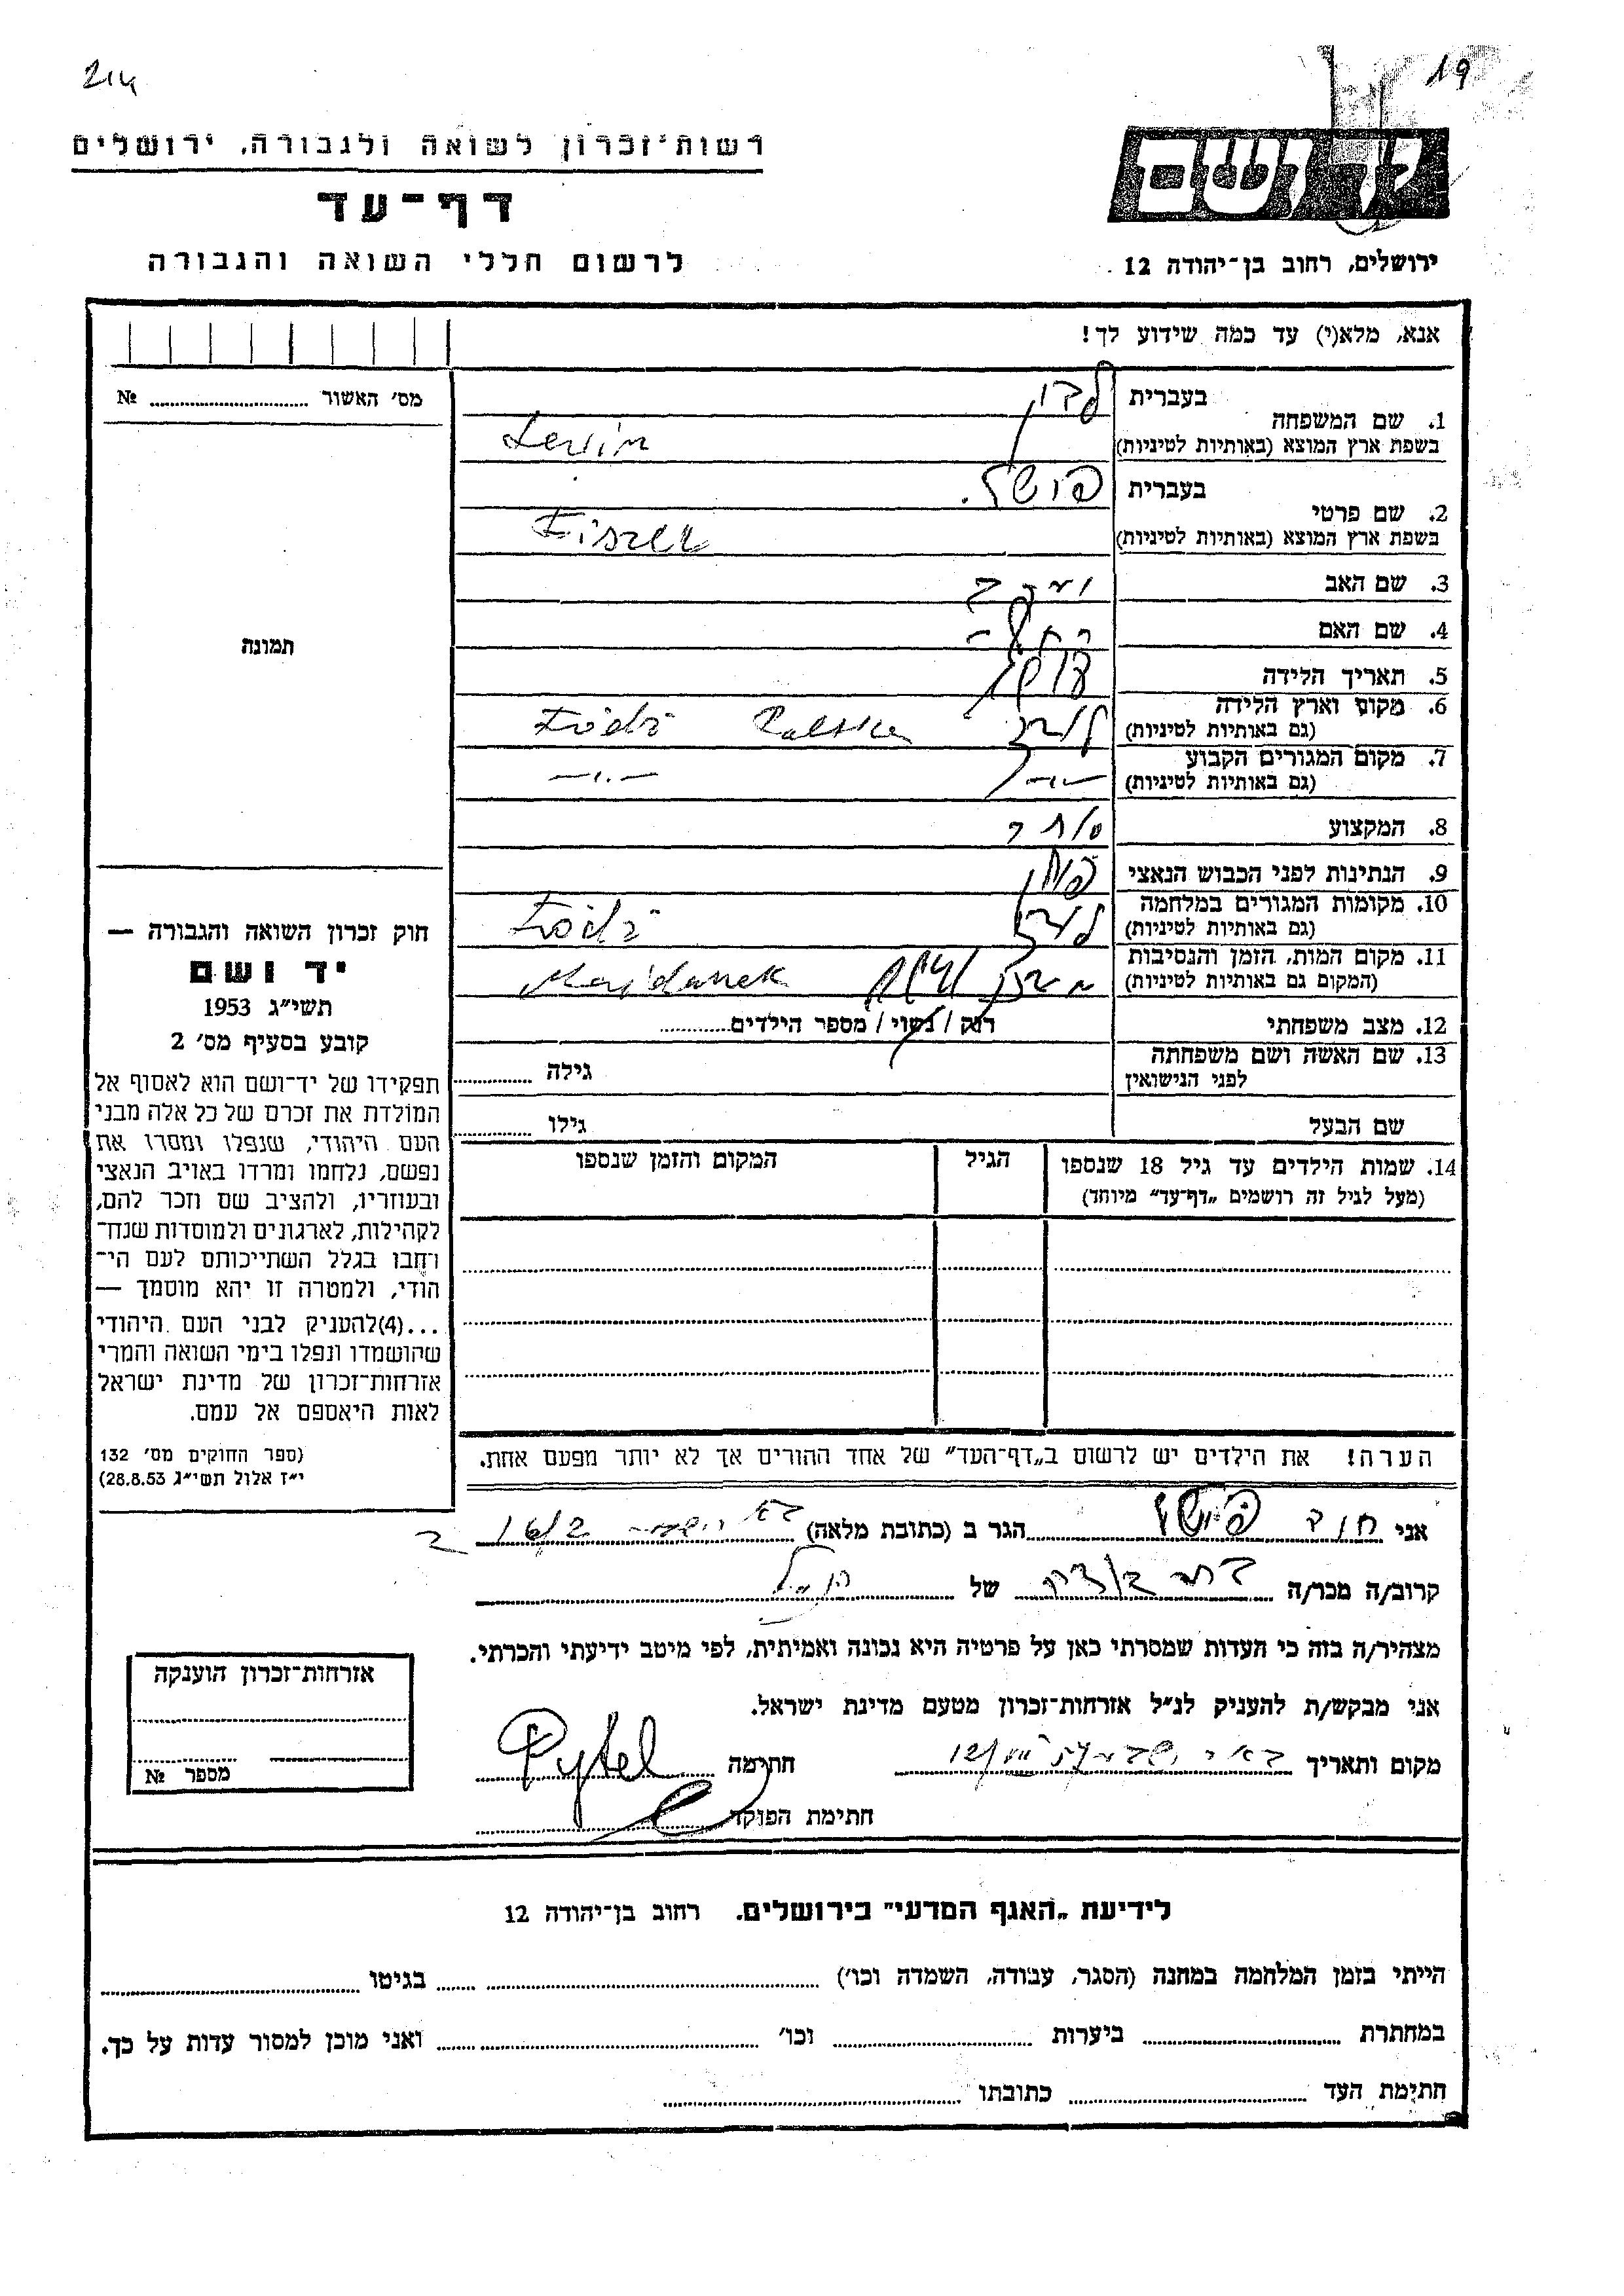 214
19
רשות־זכרון לשואה ולגבורה, ירושלים
יד ושם
דף־עד
לרשום חללי השואה והגבורה
ירושלים, רחוב בן־יהודה 12
אנא, מלא(י) עד כמה שידוע לך!
מס׳ האשור № 
תמונה
1. שם המשפחה
בעברית
בשפת ארץ המוצא (באותיות לטיניות) Levin
2. שם פרטי
בעברית פישל
בשפת ארץ המוצא (באותיות לטיניות)
3. שם האב יעקב
4. שם האם רחל
5. תאריך הלידה
6. מקום וארץ הלידה
(גם באותיות לטיניות) לודז Łódź Polska
7. מקום המגורים הקבוע
(גם באותיות לטיניות) —״— —״—
8. המקצוע סוחר
9. הנתינות לפני הכבוש הנאצי פולין
10. מקומות המגורים במלחמה
(גם באותיות לטיניות) לודז Łódź
11. מקום המות, הזמן והנסיבות
(המקום גם באותיות לטיניות) Majdanek
12. מצב משפחתי רוק / נשוי / מספר הילדים
13. שם האשה ושם משפחתה
לפני הנישואין גילה
שם הבעל גילו
14. שמות הילדים עד גיל 18 שנספו
(מעל לגיל זה רושמים „דף־עד״ מיוחד)
הגיל
המקום והזמן שנספו
הערה! את הילדים יש לרשום ב„דף־העד״ של אחד ההורים אך לא יותר מפעם אחת.
חוק זכרון השואה והגבורה —
יד ושם
תשי״ג 1953
קובע בסעיף מס׳ 2
תפקידו של יד־ושם הוא לאסוף אל
המולדת את זכרם של כל אלה מבני
העם היהודי, שנפלו ומסרו את
נפשם, נלחמו ומרדו באויב הנאצי
ובעוזריו, ולהציב שם וזכר להם,
לקהילות, לארגונים ולמוסדות שנח־
רחבו בגלל השתייכותם לעם הי־
הודי, ולמטרה זו יהא מוסמך —
...(4)להעניק לבני העם היהודי
שהושמדו ונפלו בימי השואה והמרי
אזרחות־זכרון של מדינת ישראל
לאות היאספם אל עמם.
(ספר החוקים מס׳ 132
י״ז אלול תשי״ג 28.8.53)
אני הגר ב (כתובת מלאה) באר שבע
קרוב/ה מכר/ה של
מצהיר/ה בזה כי העדות שמסרתי כאן על פרטיה היא נכונה ואמיתית, לפי מיטב ידיעתי והכרתי.
אני מבקש/ת להעניק לנ״ל אזרחות־זכרון מטעם מדינת ישראל.
מקום ותאריך באר שבע חתימה Pytel
חתימת הפוקד
אזרחות־זכרון הוענקה
מספר №
לידיעת „האגף המדעי״ בירושלים. רחוב בן־יהודה 12
הייתי בזמן המלחמה במחנה (הסגר, עבודה, השמדה וכו׳) בגיטו
במחתרת ביערות וכו׳ ואני מוכן למסור עדות על כך.
חתימת העד כתובתו